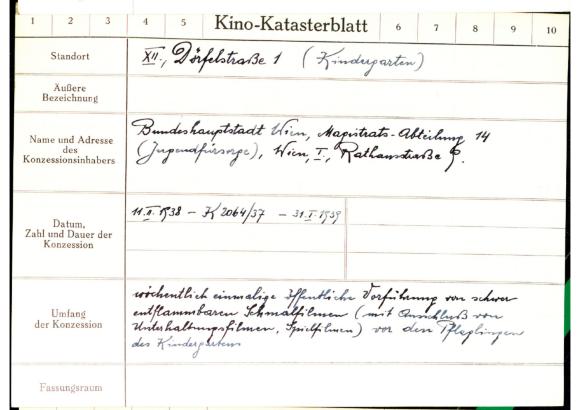 1 2 3 4 5 Kino-Katasterblatt 6 7 8 9 10
Standort
XII., Dörfelstraße 1 (Kindergarten)
Äußere
Bezeichnung
Name und Adresse
des
Konzessionsinhabers
Bundeshauptstadt Wien, Magistrats-Abteilung 14
(Jugendfürsorge), Wien, I., Rathausstraße 9.
Datum,
Zahl und Dauer der
Konzession
11.II.1938 – K 2064/37 – 31.I.1939
Umfang
der Konzession
wöchentlich einmalige öffentliche Vorführung von schwer
entflammbaren Schmalfilmen (mit Ausschluß von
Unterhaltungsfilmen, Spielfilmen) vor den Pfleglingen
des Kindergartens
Fassungsraum